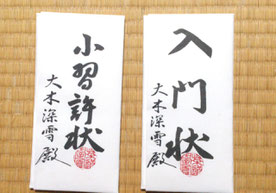 入門状
大木深雪殿
小習許状
大木深雪殿